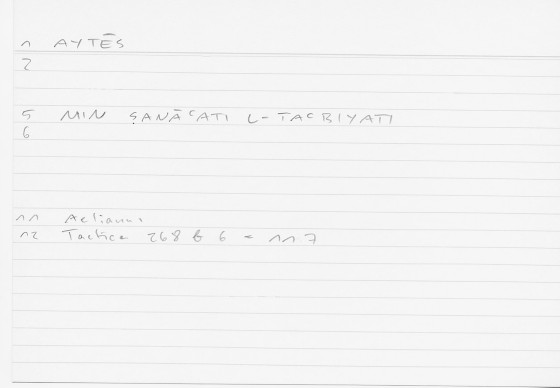 1 AYTĒS
2
5 MIN ṢANĀʿATI L-TAʿBIYATI
6
11 Aelianus
12 Tactica 268 b 6 - 11 7